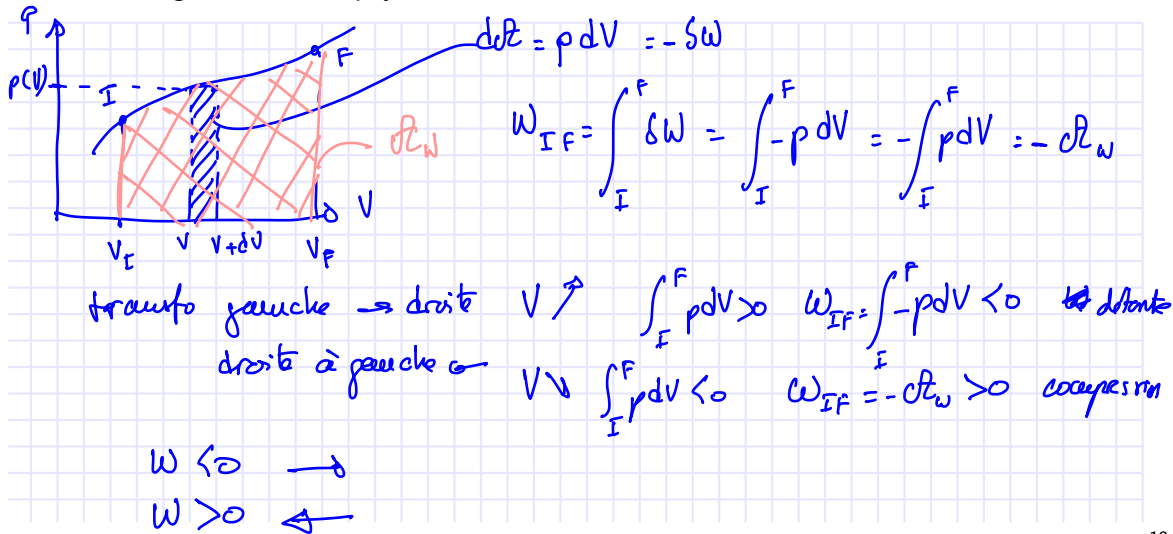 P
d𝒜 = p dV = - δW
F
p(V)
I
W_IF = ∫_I^F δW = ∫_I^F -p dV = -∫_I^F p dV = - 𝒜_W
𝒜_W
V
V_I V V+dV V_F
transfo gauche → droite V ↗ ∫_I^F p dV > 0 W_IF = ∫_I^F -p dV < 0 détente
droite à gauche ← V ↘ ∫_I^F p dV < 0 W_IF = - 𝒜_W > 0 compression
W < 0 →
W > 0 ←